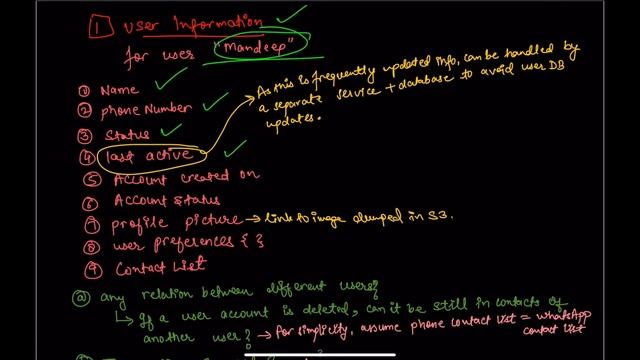 1 User Information
for user "Mandeep"
① Name
② phone Number
③ Status
④ last active
As this is frequently updated info, can be handled by
a separate service + database to avoid user DB
updates.
⑤ Account created on
⑥ Account status
⑦ profile picture → link to image dumped in S3.
⑧ user preferences { }
⑨ Contact List
ⓐ any relation between different users?
↳ If a user account is deleted, can it be still in contacts of
another user? → for simplicity, assume phone contact list = whatsApp
contact list